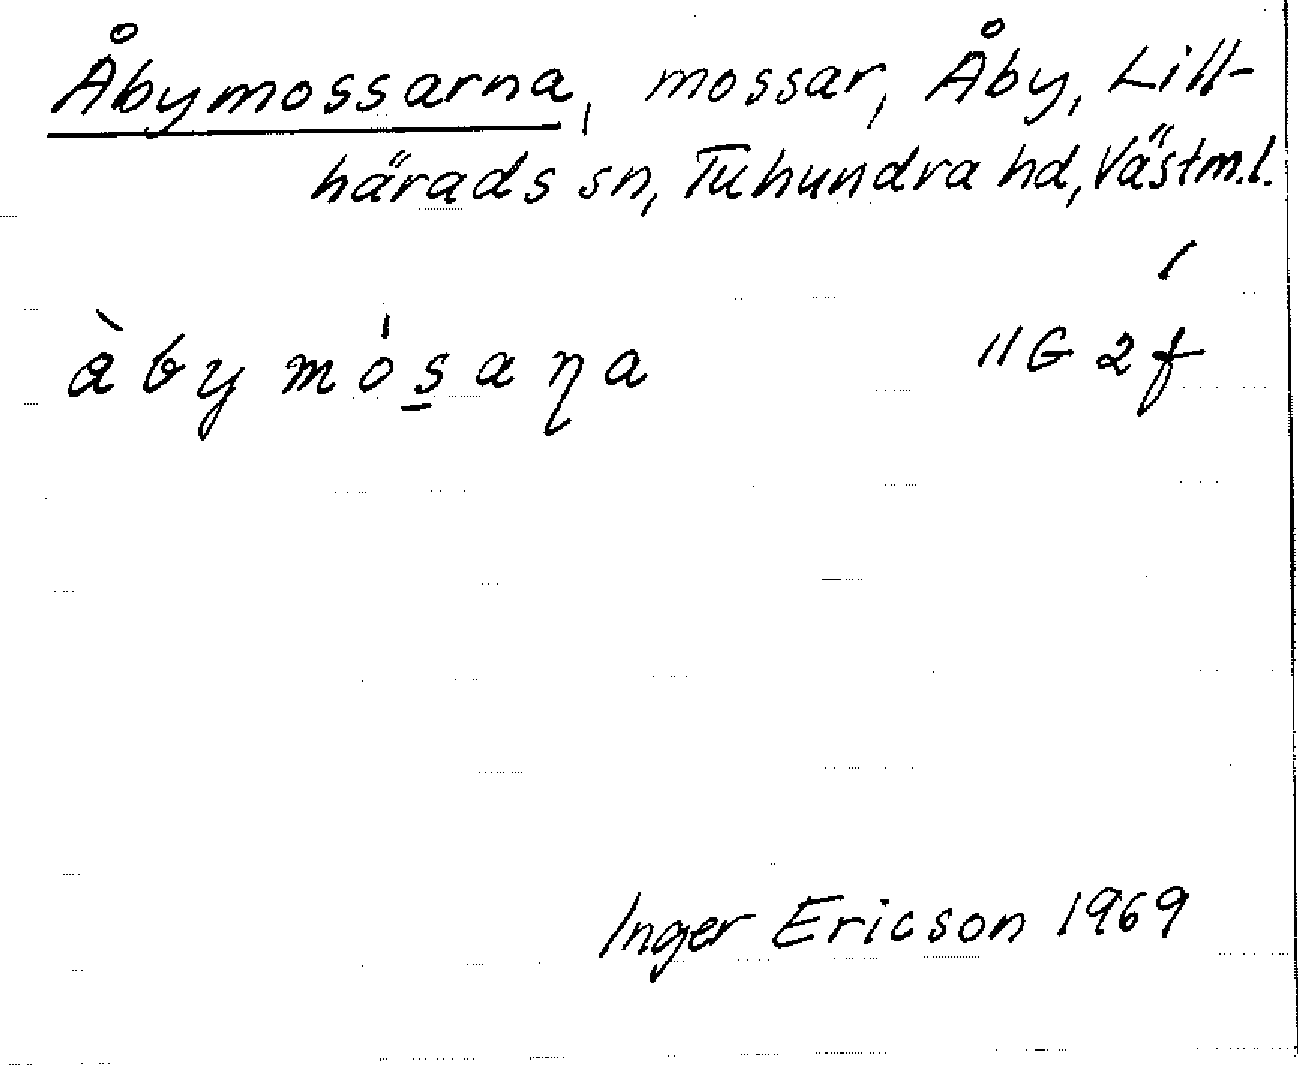 Åbymossarna, mossar, Åby, Lill-
härads sn, Tuhundra hd, Västm.l.
àbymósaɳa 11G 2f
Inger Ericson 1969